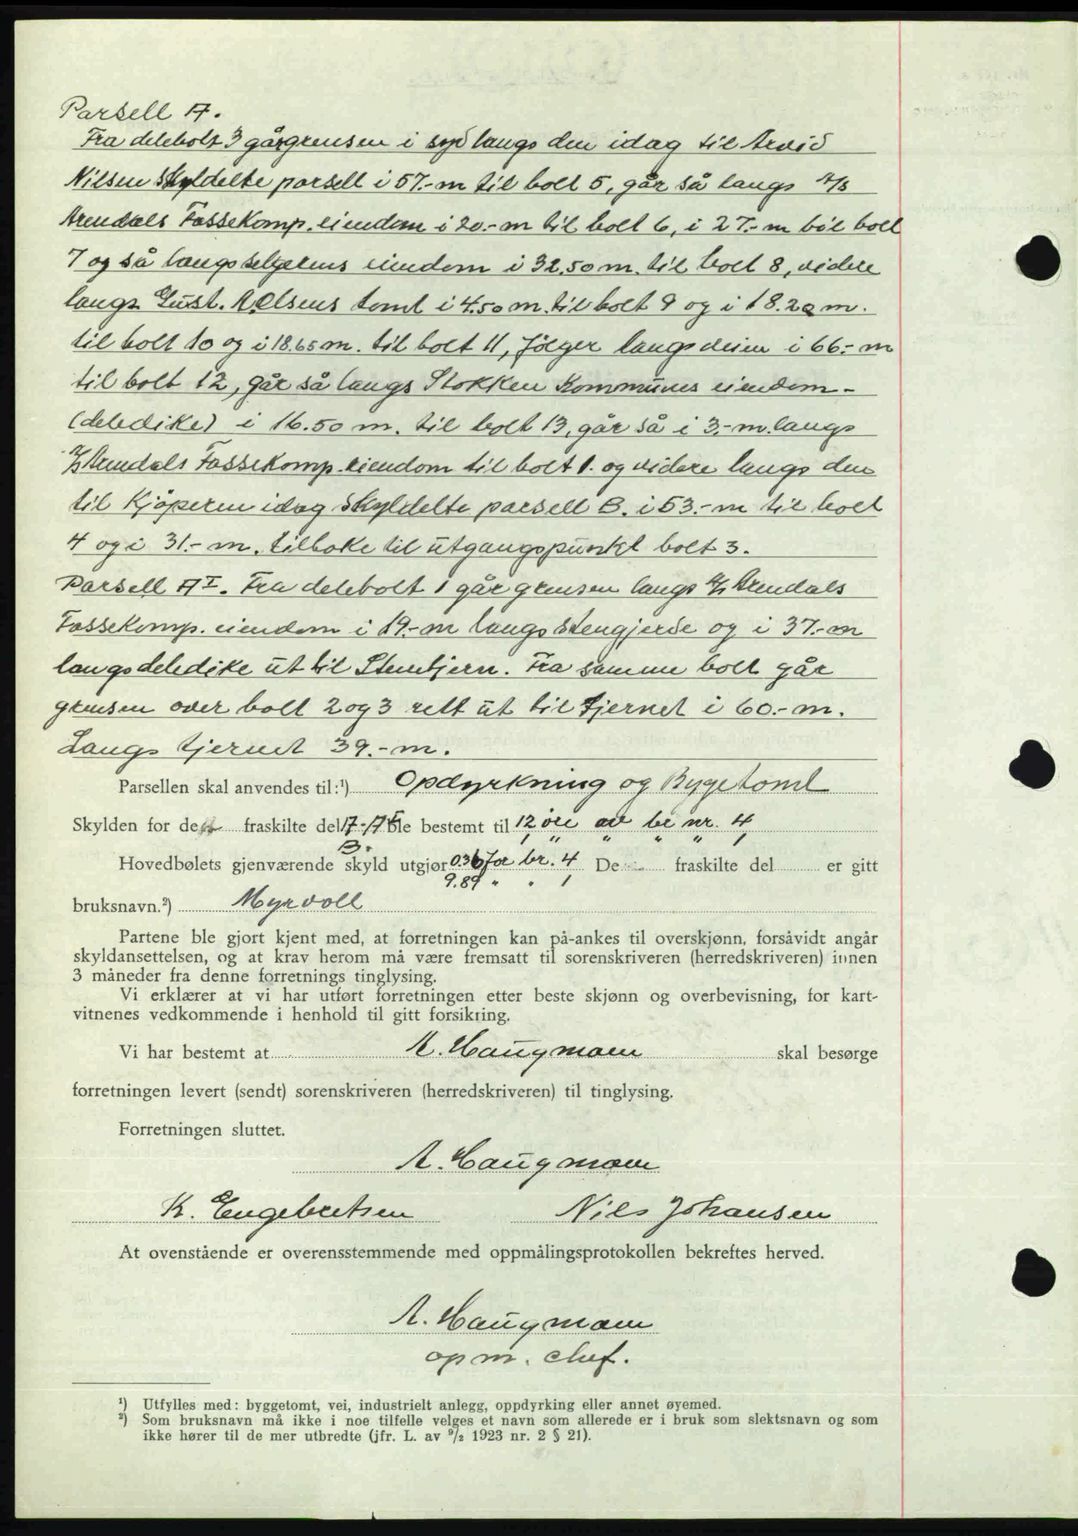 Parsell A.
Fra delebolt 3 går grensen i syd langs den idag til Arvid
Nilsen skyldelte parsell i 57.-m til bolt 5, går så langs A/S
Arendals Fossekomp. eiendom i 20.-m til bolt 6, i 27.-m til bolt
7 og så langs selgerens eiendom i 32.50 m. til bolt 8, videre
langs Gust. A. Olsens tomt i 4.50 m. til bolt 9 og i 18.20 m.
til bolt 10 og i 18.65 m. til bolt 11, følger langs veien i 66.-m
til bolt 12, går så langs Stokken Kommunes eiendom-
(deledike) i 16.50 m. til bolt 13, går så i 3.-m. langs
A/S Arendals Fossekomp. eiendom til bolt 1. og videre langs den
til Kjøperen idag skyldelte parsell B. i 53.-m til bolt
4 og i 31.-m. tilbake til utgangspunkt bolt 3.
Parsell A I. Fra delebolt 1 går grensen langs A/S Arendals
Fossekomp. eiendom i 19.-m langs stengjerde og i 37.-m
langs deledike ut til Stemtjern. Fra samme bolt går
grensen over bolt 2 og 3 rett ut til tjernet i 60.-m.
Langs tjernet 39.-m.
Parsellen skal anvendes til:¹) Opdyrkning og Bygetomt
Skylden for de fraskilte del A-A I ble bestemt til 12 øre av br nr. 4
B. 1 " " " " 1
Hovedbølets gjenværende skyld utgjør 0.36 for br. 4 De fraskilte del er gitt
9.89 " " 1
bruksnavn.²) Myrvoll
Partene ble gjort kjent med, at forretningen kan på-ankes til overskjønn, forsåvidt angår
skyldansettelsen, og at krav herom må være fremsatt til sorenskriveren (herredskriveren) innen
3 måneder fra denne forretnings tinglysing.
Vi erklærer at vi har utført forretningen etter beste skjønn og overbevisning, for kart-
vitnenes vedkommende i henhold til gitt forsikring.
Vi har bestemt at A. Haugmoen skal besørge
forretningen levert (sendt) sorenskriveren (herredskriveren) til tinglysing.
Forretningen sluttet.
A. Haugmoen
K. Engebretsen Nils Johansen
At ovenstående er overensstemmende med oppmålingsprotokollen bekreftes herved.
A. Haugmoen
opm. chef.
¹) Utfylles med: byggetomt, vei, industrielt anlegg, oppdyrking eller annet øyemed.
²) Som bruksnavn må ikke i noe tilfelle velges et navn som allerede er i bruk som slektsnavn og som
ikke hører til de mer utbredte (jfr. L. av ⁹/₂ 1923 nr. 2 § 21).